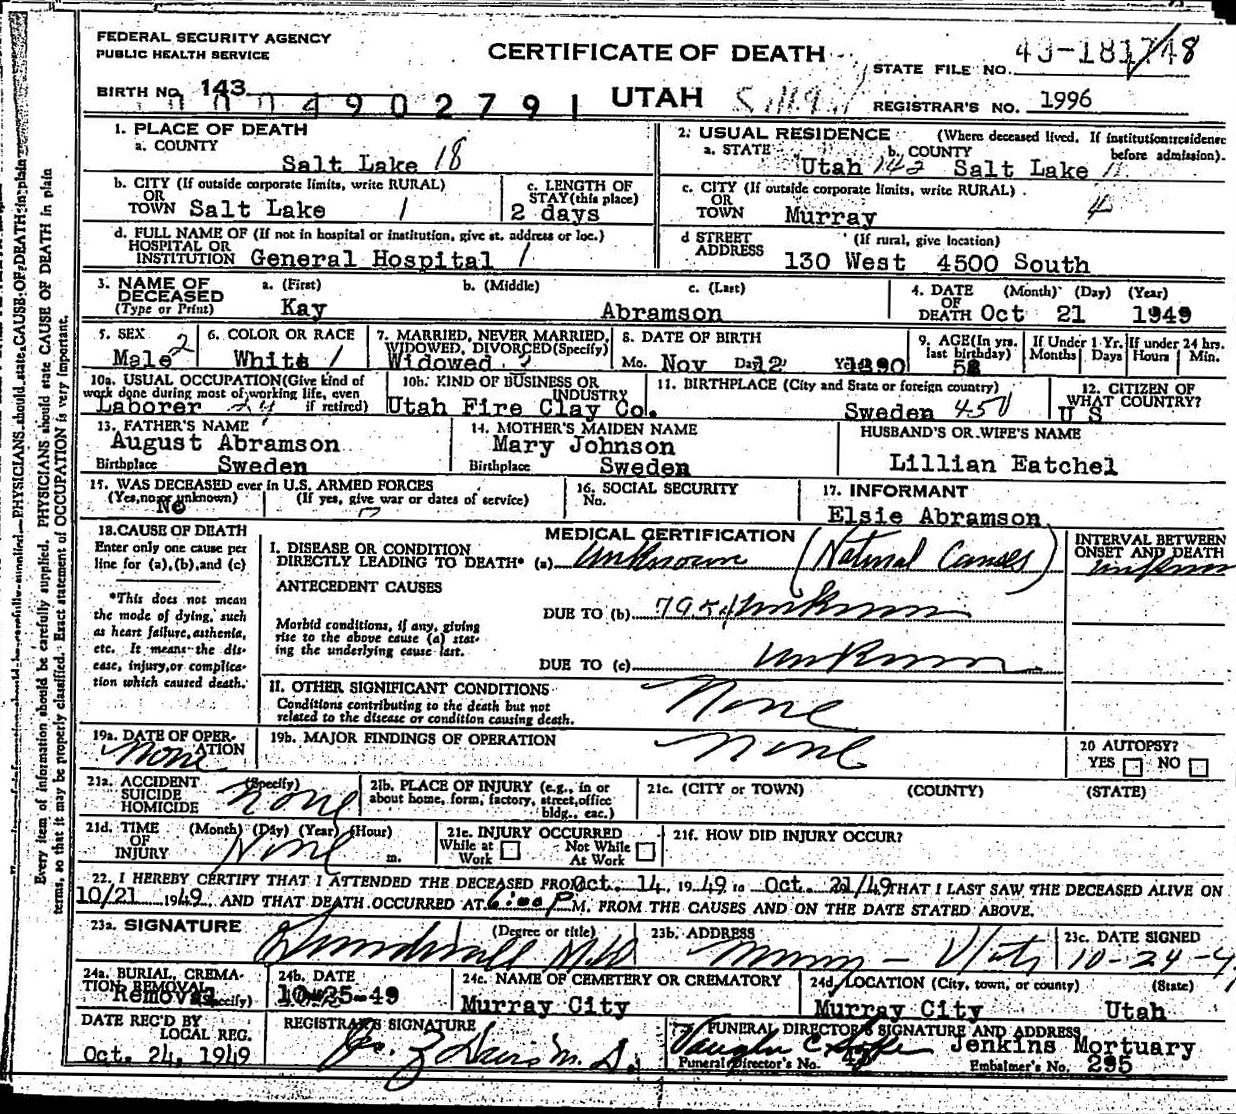 FEDERAL SECURITY AGENCY
PUBLIC HEALTH SERVICE
CERTIFICATE OF DEATH
STATE FILE NO. 49-181748
BIRTH NO. 143
0 0 0 4 9 0 2 7 9 1
UTAH
REGISTRAR'S NO. 1996
1. PLACE OF DEATH
a. COUNTY
Salt Lake 18
2. USUAL RESIDENCE (Where deceased lived. If institution: residence before admission).
a. STATE b. COUNTY
Utah 142 Salt Lake 11
b. CITY (If outside corporate limits, write RURAL)
OR
TOWN Salt Lake 1
c. LENGTH OF
STAY (this place)
2 days
c. CITY (If outside corporate limits, write RURAL)
OR
TOWN Murray 4
d. FULL NAME OF (If not in hospital or institution, give st. address or loc.)
HOSPITAL OR
INSTITUTION General Hospital 1
d STREET (If rural, give location)
ADDRESS 130 West 4500 South
3. NAME OF DECEASED
(Type or Print)
a. (First) b. (Middle) c. (Last)
Kay Abramson
4. DATE (Month) (Day) (Year)
OF
DEATH Oct 21 1949
5. SEX
Male 2
6. COLOR OR RACE
White 1
7. MARRIED, NEVER MARRIED,
WIDOWED, DIVORCED (Specify)
Widowed
8. DATE OF BIRTH
Mo. Nov Da. 12 Yr. 1890
9. AGE (In yrs. last birthday)
58
If Under 1 Yr. If under 24 hrs.
Months Days Hours Min.
10a. USUAL OCCUPATION (Give kind of
work done during most of working life, even
if retired)
Laborer
10b. KIND OF BUSINESS OR
INDUSTRY
Utah Fire Clay Co.
11. BIRTHPLACE (City and State or foreign country)
Sweden 450
12. CITIZEN OF
WHAT COUNTRY?
U S
13. FATHER'S NAME
August Abramson
Birthplace Sweden
14. MOTHER'S MAIDEN NAME
Mary Johnson
Birthplace Sweden
HUSBAND'S OR WIFE'S NAME
Lillian Eatchel
15. WAS DECEASED ever in U.S. ARMED FORCES
(Yes, no or unknown) (If yes, give war or dates of service)
No
16. SOCIAL SECURITY
No.
17. INFORMANT
Elsie Abramson
18. CAUSE OF DEATH
Enter only one cause per
line for (a), (b), and (c)
*This does not mean
the mode of dying, such
as heart failure, asthenia,
etc. It means the dis-
ease, injury, or complica-
tion which caused death.
MEDICAL CERTIFICATION
I. DISEASE OR CONDITION
DIRECTLY LEADING TO DEATH* (a) Unknown (Natural Causes)
INTERVAL BETWEEN
ONSET AND DEATH
unknown
ANTECEDENT CAUSES
DUE TO (b) 7954 unknown
Morbid conditions, if any, giving
rise to the above cause (a) stat-
ing the underlying cause last.
DUE TO (c) unknown
II. OTHER SIGNIFICANT CONDITIONS
Conditions contributing to the death but not
related to the disease or condition causing death.
None
19a. DATE OF OPER-
ATION
None
19b. MAJOR FINDINGS OF OPERATION
None
20 AUTOPSY?
YES NO
21a. ACCIDENT (Specify)
SUICIDE
HOMICIDE
None
21b. PLACE OF INJURY (e.g., in or
about home, form, factory, street, office
bldg., eac.)
21c. (CITY or TOWN) (COUNTY) (STATE)
21d. TIME (Month) (Day) (Year) (Hour)
OF
INJURY None m.
21e. INJURY OCCURRED
While at Work Not While At Work
21f. HOW DID INJURY OCCUR?
22. I HEREBY CERTIFY THAT I ATTENDED THE DECEASED FROM Oct. 14, 1949 to Oct. 21/49 THAT I LAST SAW THE DECEASED ALIVE ON
10/21 1949, AND THAT DEATH OCCURRED AT 6:00 P M. FROM THE CAUSES AND ON THE DATE STATED ABOVE.
23a. SIGNATURE (Degree or title)
M.D.
23b. ADDRESS
Murray - Utah
23c. DATE SIGNED
10-24-4
24a. BURIAL, CREMA-
TION REMOVAL (Specify)
Removal
24b. DATE
10-25-49
24c. NAME OF CEMETERY OR CREMATORY
Murray City
24d. LOCATION (City, town, or county) (State)
Murray City Utah
DATE REC'D BY
LOCAL REG.
Oct. 24, 1949
REGISTRAR'S SIGNATURE
M. D.
FUNERAL DIRECTOR'S SIGNATURE AND ADDRESS
Vaughn C. Jenkins Mortuary
Funeral Director's No. Embalmer's No. 295
Every item of information should be carefully supplied. PHYSICIANS should state CAUSE OF DEATH in plain
terms, so that it may be properly classified. Exact statement of OCCUPATION is very important.